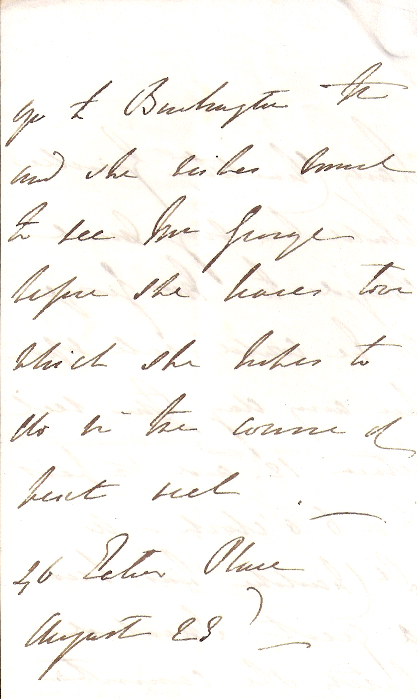 go to Burlington St
and she wishes much
to see Mr George
before she leaves town
which she wishes to
do in the course of
next week.
46 Place
August 23